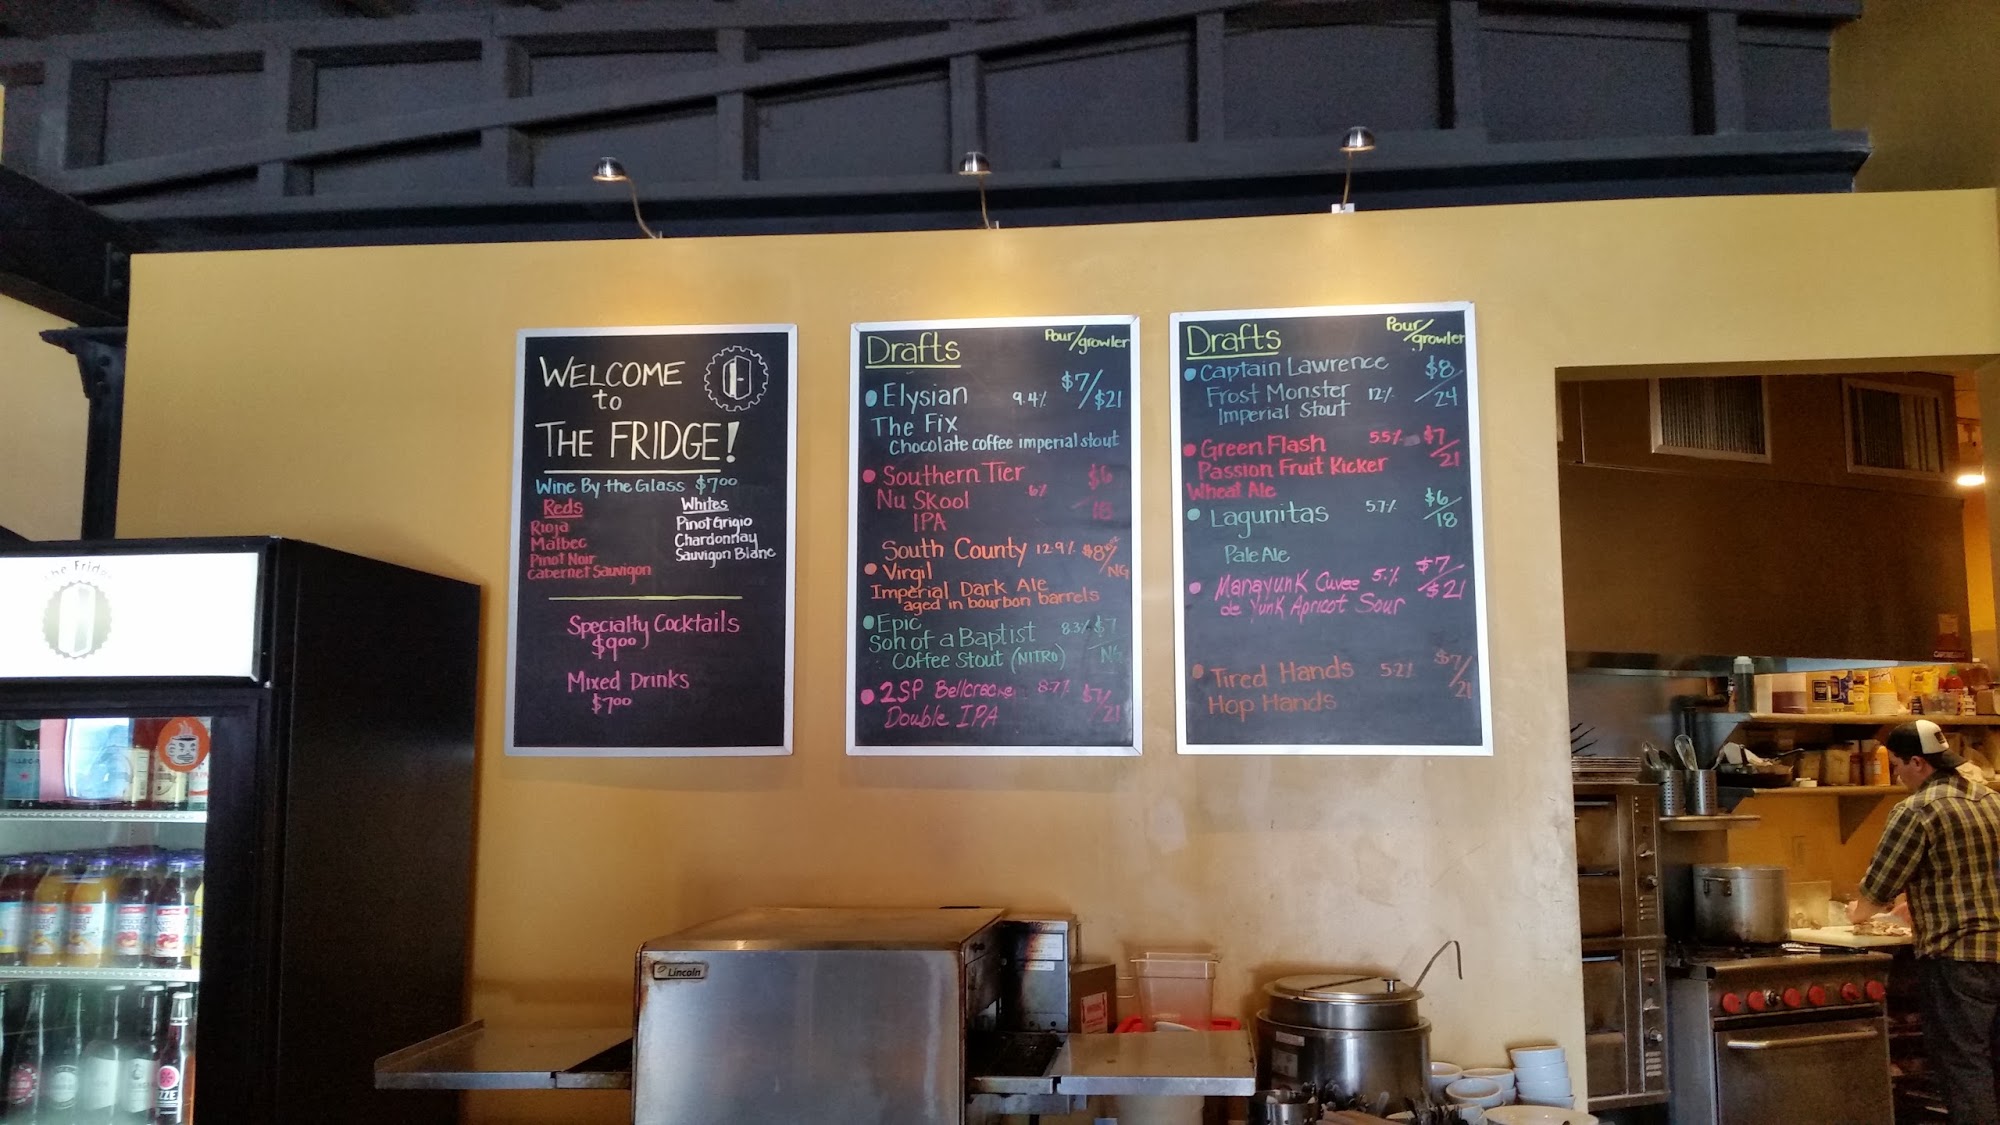 WELCOME
to
THE FRIDGE!
Wine By the Glass $7.00
Reds
Rioja
Malbec
Pinot Noir
Cabernet Sauvigon
Whites
Pinot Grigio
Chardonnay
Sauvigon Blanc
Specialty Cocktails
$9.00
Mixed Drinks
$7.00
Drafts Pour/growler
Elysian 9.4% $7/$21
The Fix
Chocolate coffee imperial stout
Southern Tier $6
Nu Skool 6% /18
IPA
South County 12.9% $8/NG
Virgil
Imperial Dark Ale
aged in bourbon barrels
Epic
Son of a Baptist 8.3% $7
Coffee Stout (NITRO) /NG
2SP Bellcracker 8.7% $7/21
Double IPA
Drafts Pour/growler
Captain Lawrence $8
Frost Monster 12% /24
Imperial Stout
Green Flash 5.5% $7/21
Passion Fruit Kicker
Wheat Ale
Lagunitas 5.7% $6/18
Pale Ale
Manayunk Cuvee 5.% $7/$21
de Yunk Apricot Sour
Tired Hands 5.2% $7/21
Hop Hands
The Fridge
Lincoln